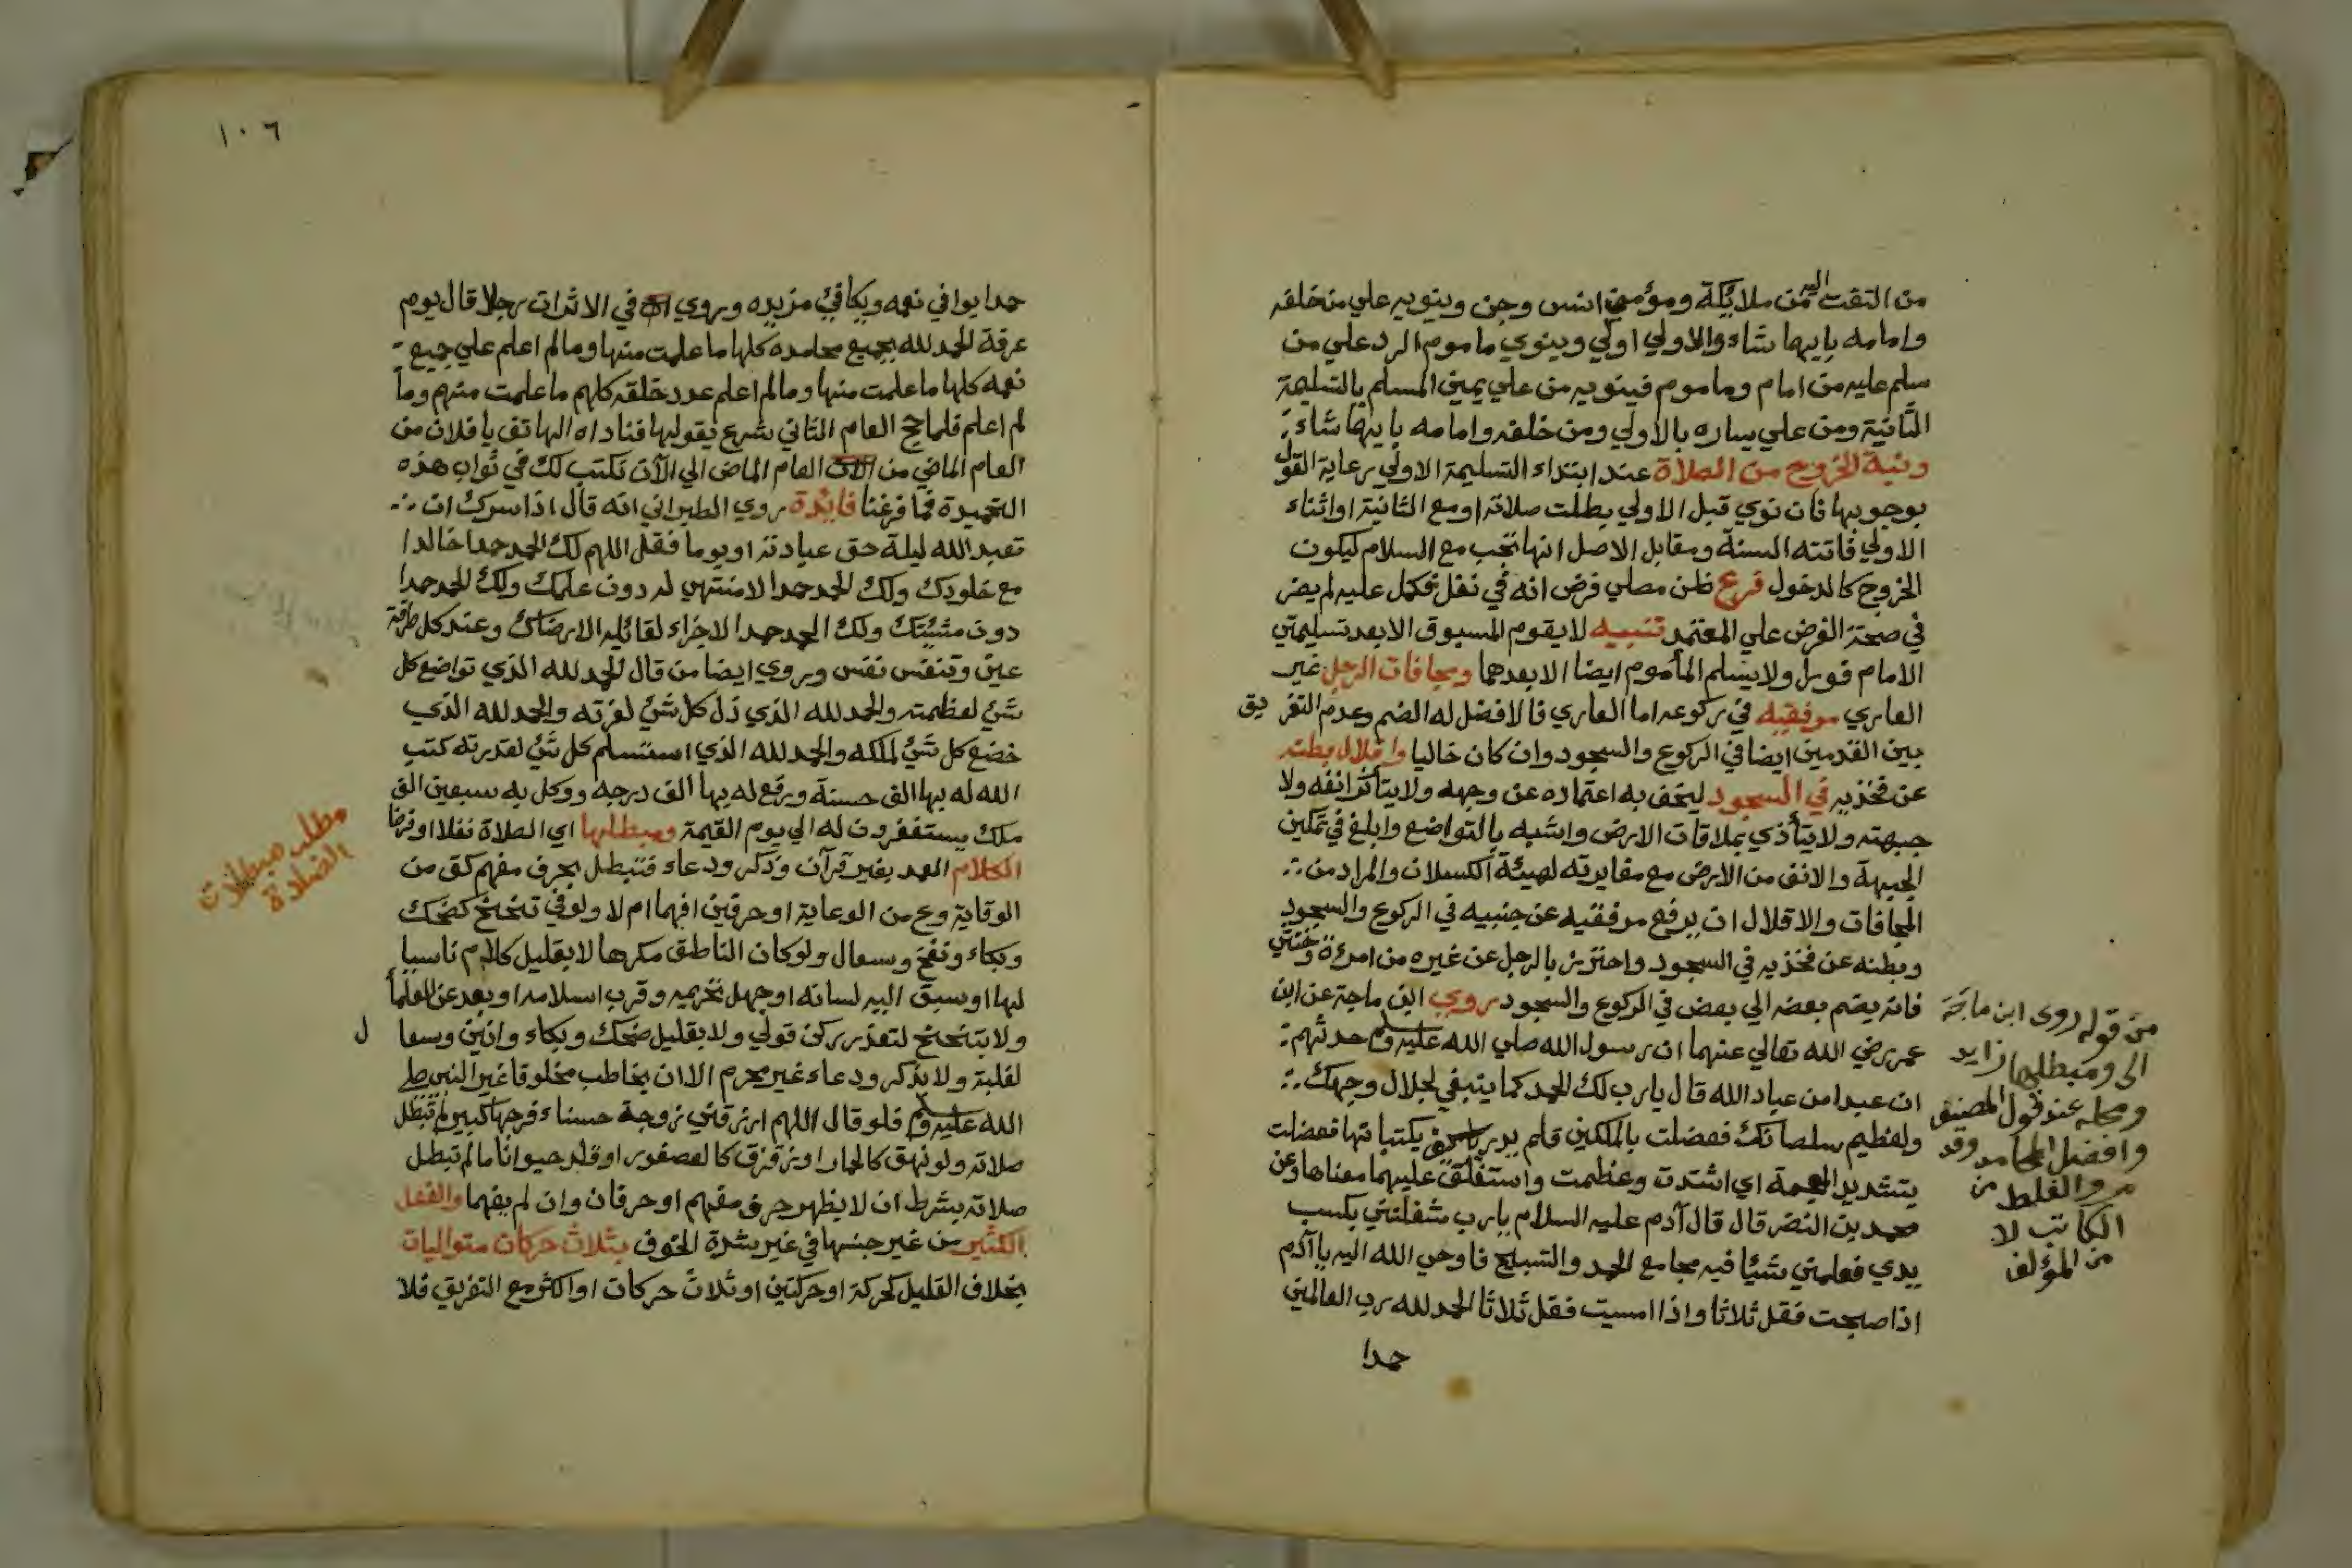 من التفت اليه من ملائكة ومؤمني انس وجن وينويه علي من خلفه
وامامه بايهما شاء والاولي اولي وينوي ماموم الرد علي من
سلم عليه من امام وماموم فينويه من علي يمين المسلم بالتسليمة
الثانية ومن علي يساره بالاولي ومن خلفه وامامه بايهما شاء
ونية الخروج من الصلاة عند ابتداء التسليمة الاولي رعاية القول
بوجوبها فان نوي قبل الاولي بطلت صلاته او مع الثانية او اثناء
الاولي فاتته السنة ومقابل الاصل انها تجب مع السلام ليكون
الخروج كالدخول فرع ظن مصلي فرض انه في نفل فكمل عليه لم يضر
في صحة الفرض علي المعتمد تنبيه لا يقوم المسبوق الا بعد تسليمتي
الامام قوله ولا يسلم المأموم ايضا الا بعدهما ومجافات الرجل غير
العاري مرفقيه في ركوعه اما العاري فالافضل له الضم وعدم التفريق
بين القدمين ايضا في الركوع والسجود وان كان خاليا واقلال بطنه
عن فخذيه في السجود ليخف به اعتماده عن وجهه ولا يتأثر انفه ولا
جبهته ولا يتأذي بملاقات الارض واشبه بالتواضع وابلغ في تمكين
الجبهة والانف من الارض مع مغايرته لهيئة الكسلان والمراد من
المجافات والاقلال ان يرفع مرفقيه عن جنبيه في الركوع والسجود
وبطنه عن فخذيه في السجود واحترز بالرجل عن غيره من امرءة وخنثي
فانه يضم بعضه الي بعض في الركوع والسجود روي ابن ماجة عن ابن
عمر رضي الله تعالي عنهما ان رسول الله صلي الله عليه وسلم حدثهم
ان عبدا من عباد الله قال يارب لك الحمد كما ينبغي لجلال وجهك
ولعظيم سلطانك فعضلت بالملكين فلم يدريا كيف يكتبانها فعضلت
بتشديد المعجمة اي اشتدت وعظمت واستغلق عليهما معناها وعن
محمد بن النضر قال قال آدم عليه السلام يارب شغلتني بكسب
يدي فعلمني شيئا فيه مجامع الحمد والتسبيح فاوحي الله اليه يا آدم
اذا صبحت فقل ثلاثا واذا امسيت فقل ثلاثا الحمد لله رب العالمين
حمدا
من قوله روى ابن ماجة
الى ومبطلها زايد
ومحله عند قول المصنف
وافضل المحامد وقد
مر والغلط من
الكاتب لا
من المؤلف
١٠٦
حمدا يوافي نعمه ويكافئ مزيده وروي في الاثر ان رجلا قال يوم
عرفة الحمد لله بجميع محامده كلها ما علمت منها وما لم اعلم علي جميع
نعمه كلها ما علمت منها وما لم اعلم عدد خلقه كلهم ما علمت منهم وما
لم اعلم فلما حج العام الثاني شرع يقولها فناداه الهاتف يا فلان من
العام الماضي من الان العام الماضي الي الآن نكتب لك في ثواب هذه
التحميدة فما فرغنا فايدة روي الطبراني انه قال اذا سرك ان
تعبد الله ليلة حق عبادته او يوما فقل اللهم لك الحمد حمدا خالدا
مع خلودك ولك الحمد حمدا لا منتهي له دون علمك ولك الحمد حمدا
دون مشيئتك ولك الحمد حمدا لا جزاء لقائله الا رضاك وعند كل طرفة
عين وتنفس نفس وروي ايضا من قال الحمد لله الذي تواضع كل
شئ لعظمته والحمد لله الذي ذل كل شئ لعزته والحمد لله الذي
خضع كل شئ لملكه والحمد لله الذي استسلم كل شئ لقدرته كتب
الله له بها الف حسنة ورفع له بها الف درجه ووكل به سبعين الف
ملك يستغفرون له الي يوم القيمة ومبطلها اي الصلاة نفلا او فرضا
الكلام العمد بغير قرآن وذكر ودعاء فتبطل بحرف مفهم كق من
الوقاية وع من الوعاية او حرفين افهما ام لا ولو في تنحنح كضحك
وبكاء ونفخ وسعال ولو كان الناطق مكرها لا بقليل كلام ناسيا
لها او سبق اليه لسانه او جهل تحريمه وقرب اسلامه او بعد عن العلماء
ولا بتنحنح لتعذر ركن قولي ولا بقليل ضحك وبكاء وانين وسعال
لغلبة ولا بذكر ودعاء غير محرم الا ان يخاطب مخلوقا غير النبي صلي
الله عليه وسلم فلو قال اللهم ارزقني زوجة حسناء فرجها كبير لم تبطل
صلاته ولو نهق كالحمار او زقزق كالعصفور او قلد حيوانا ما لم تبطل
صلاته بشرط ان لا يظهر حرف مفهم او حرفان وان لم يفهما والفعل
الكثير من غير جنسها في غير شدة الخوف بثلاث حركات متواليات
بخلاف القليل كحركة او حركتين او ثلاث حركات او اكثر مع التفريق فلا
مطلب مبطلات
الصلاة